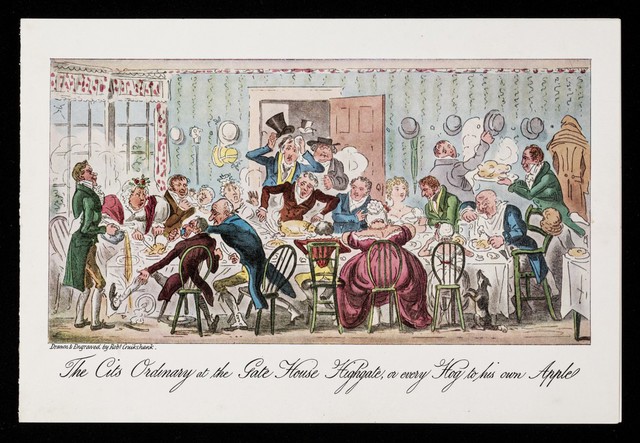 Drawn & Engraved, by Robt Cruikshank.
The Cits Ordinary at the Gate House Highgate; or every Hog to his own Apple